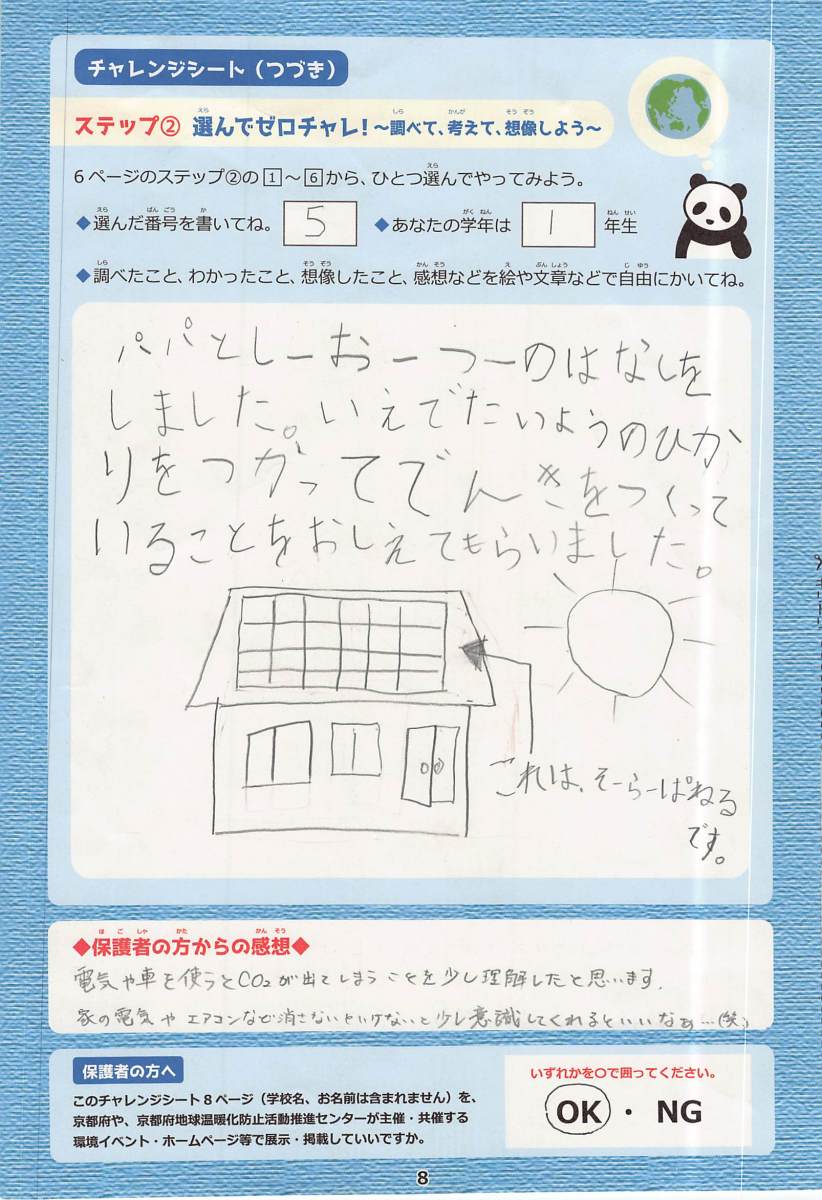 チャレンジシート（つづき）
ステップ② 選んでゼロチャレ！～調べて、考えて、想像しよう～
6ページのステップ②の1～6から、ひとつ選んでやってみよう。
◆選んだ番号を書いてね。 5 ◆あなたの学年は 1 年生
◆調べたこと、わかったこと、想像したこと、感想などを絵や文章などで自由にかいてね。
パパとしーおーつーのはなしを
しました。いえでたいようのひか
りをつがってでんきをつくって
いることをおしえてもらいました。
これは、そーらーぱねる
です。
◆保護者の方からの感想◆
電気や車を使うとCO₂が出てしまうことを少し理解したと思います。
家の電気やエアコンなど消さないといけないと少し意識してくれるといいなぁ…(笑)
保護者の方へ
このチャレンジシート8ページ（学校名、お名前は含まれません）を、
京都府や、京都府地球温暖化防止活動推進センターが主催・共催する
環境イベント・ホームページ等で展示・掲載していいですか。
いずれかを○で囲ってください。
OK ・ NG
8